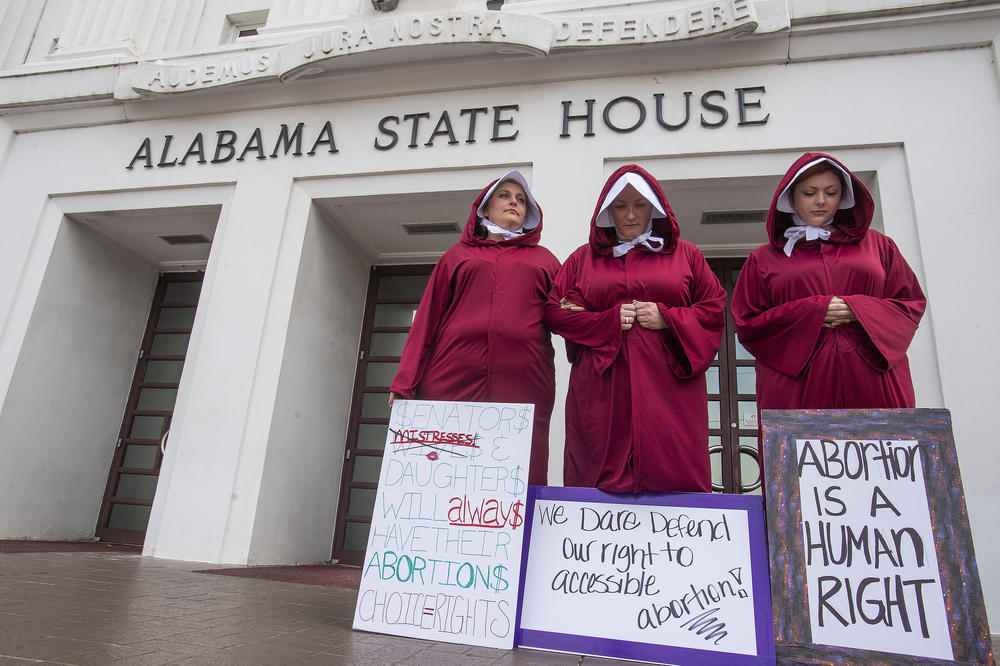 AUDEMUS JURA NOSTRA DEFENDERE
ALABAMA STATE HOUSE
$ENATOR$
MISTRESSES
WIVE$ &
DAUGHTER$
WILL alway$
HAVE THEIR
ABORTION$
CHOICE=RIGHTS
We Dare Defend
our right to
accessible
abortion!
ABORTION
IS A
HUMAN
RIGHT